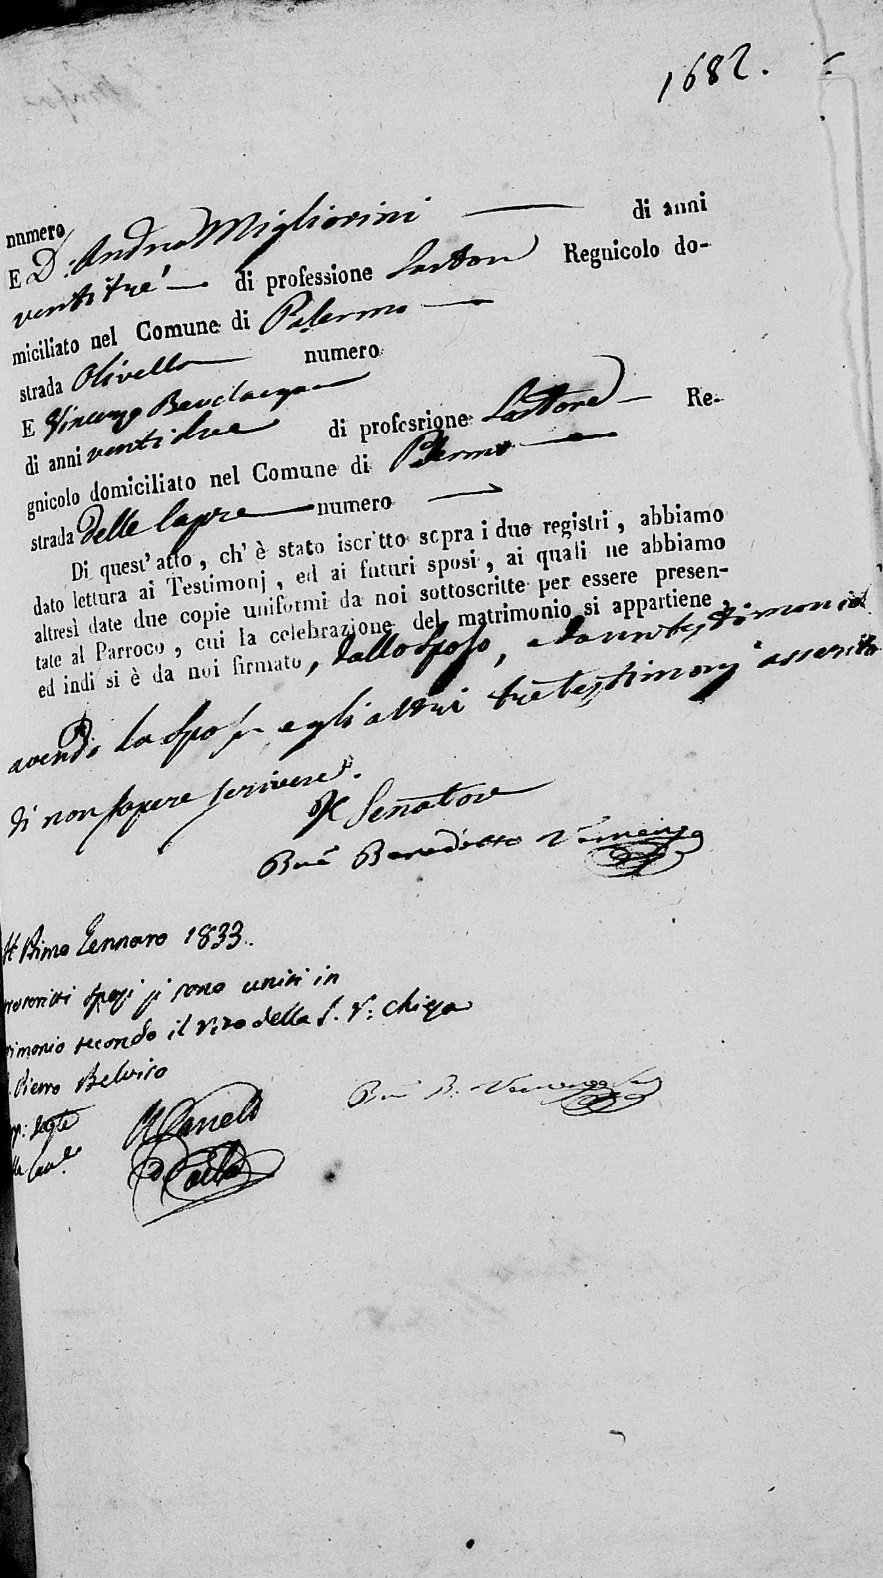 1682.
numero
E D. Andrea Migliorini di anni
ventitre' di professione Sartore Regnicolo do-
miciliato nel Comune di Palermo
strada Olivella numero
E Vincenzo Bevilacqua
di anni ventidue di professione Sartore Re-
gnicolo domiciliato nel Comune di Palermo
strada delle Capre numero
Di quest' atto, ch' è stato iscritto sopra i due registri, abbiamo
dato lettura ai Testimonj, ed ai futuri sposi, ai quali ne abbiamo
altresì date due copie uniformi da noi sottoscritte per essere presen-
tate al Parroco, cui la celebrazione del matrimonio si appartiene,
ed indi si è da noi firmato, dallo Sposo, e da un testimonio
avendo la Sposa e gli altri tre testimonj asserito
di non sapere scrivere.
Il Senatore
Benedetto
Primo Gennaro 1833.
sposi si sono uniti in
rimonio secondo il rito della S. R. Chiesa
Pietro Belviso